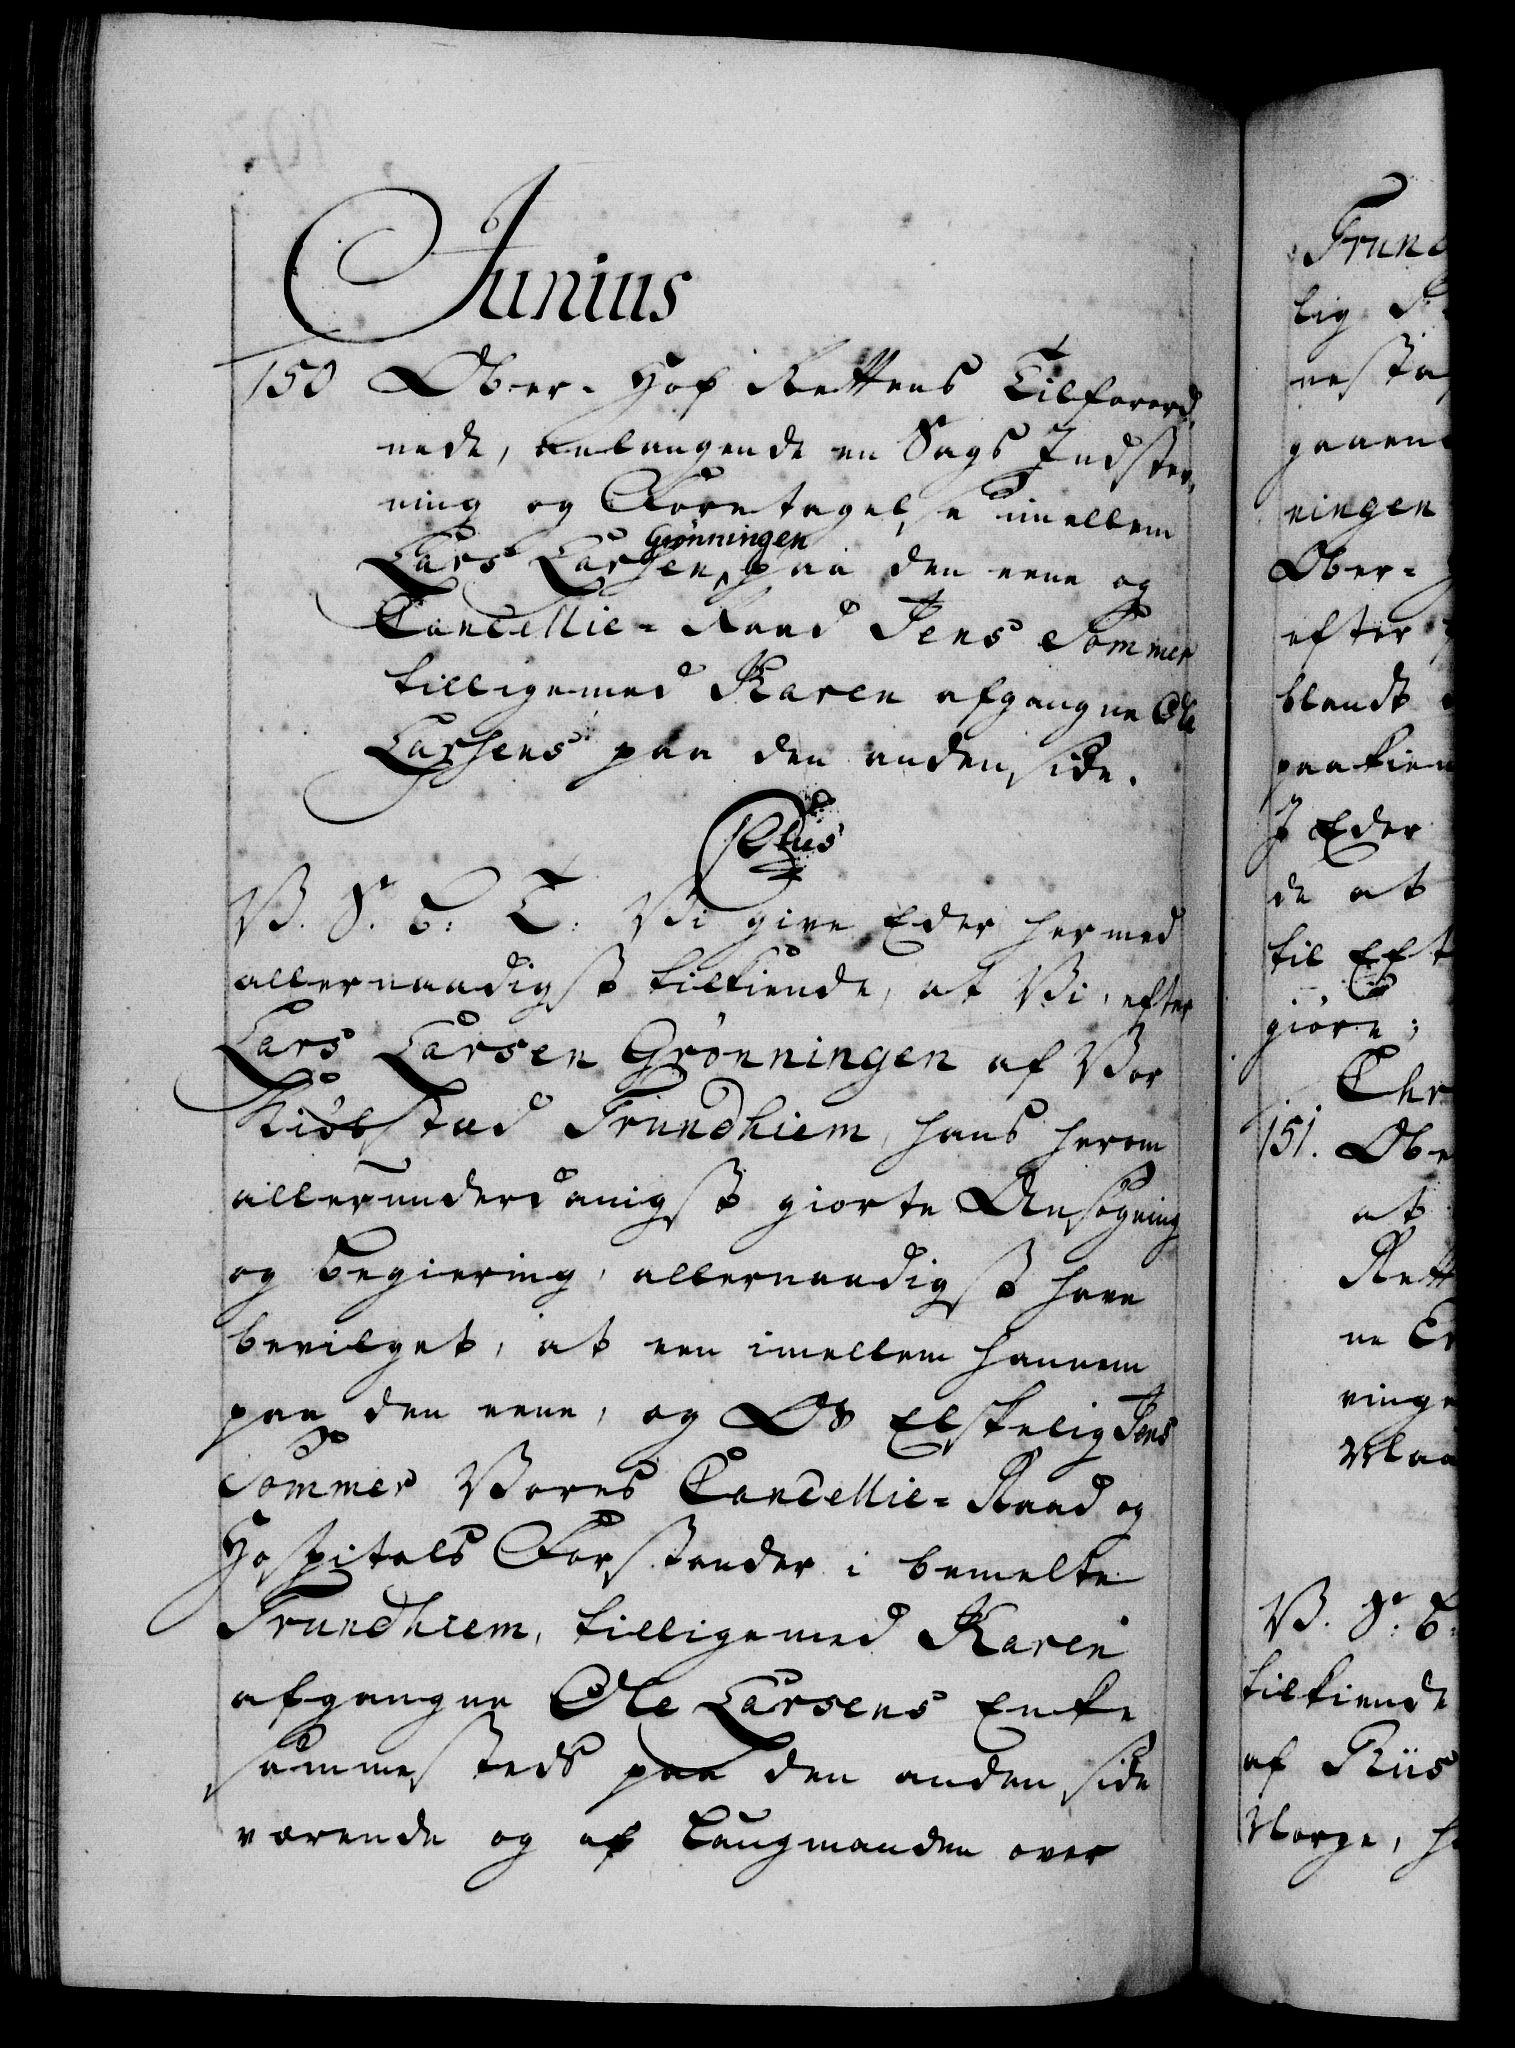 Junius
150 Ober-Hof Rettens Tilforord,
nede, anlangende en Sags Indstev,
ning og Foretagelse imellem
Lars Larsen Grönningen paa den eene og
Cancellie-Raad Jens Sommer
tilligemed Karen afgangne Ole
Larsens paa den anden side.
V. S. G. T. Vi give Eder hermed
allernaadigst tilkiende, at Vi, efter
Lars Larsen Grönningen af Vor
Kiöbstad Trundhiem, hans herom
allerunderdanigst giorte Ansögning
og begiering, allernaadigst have
bevilget, at een imellem hannem
paa den eene, og Os Elskelig Jens
Sommer Vores Cancellie-Raad og
Hospitals Forstander i bemelte
Trundhiem, tilligemed Karen
afgangne Ole Larsens Enke
sammesteds paa den anden side
værende og af Laugmanden over
Trund
lig
nesta
gaaen
ningen
Ober-
efter
blandt
paakien
I Eder
de at
til Eft
giöre;
Chr
151. Obe
at
Rett
ne
ringe
V. S. G.
tilkiende
af Riis
Norge, h